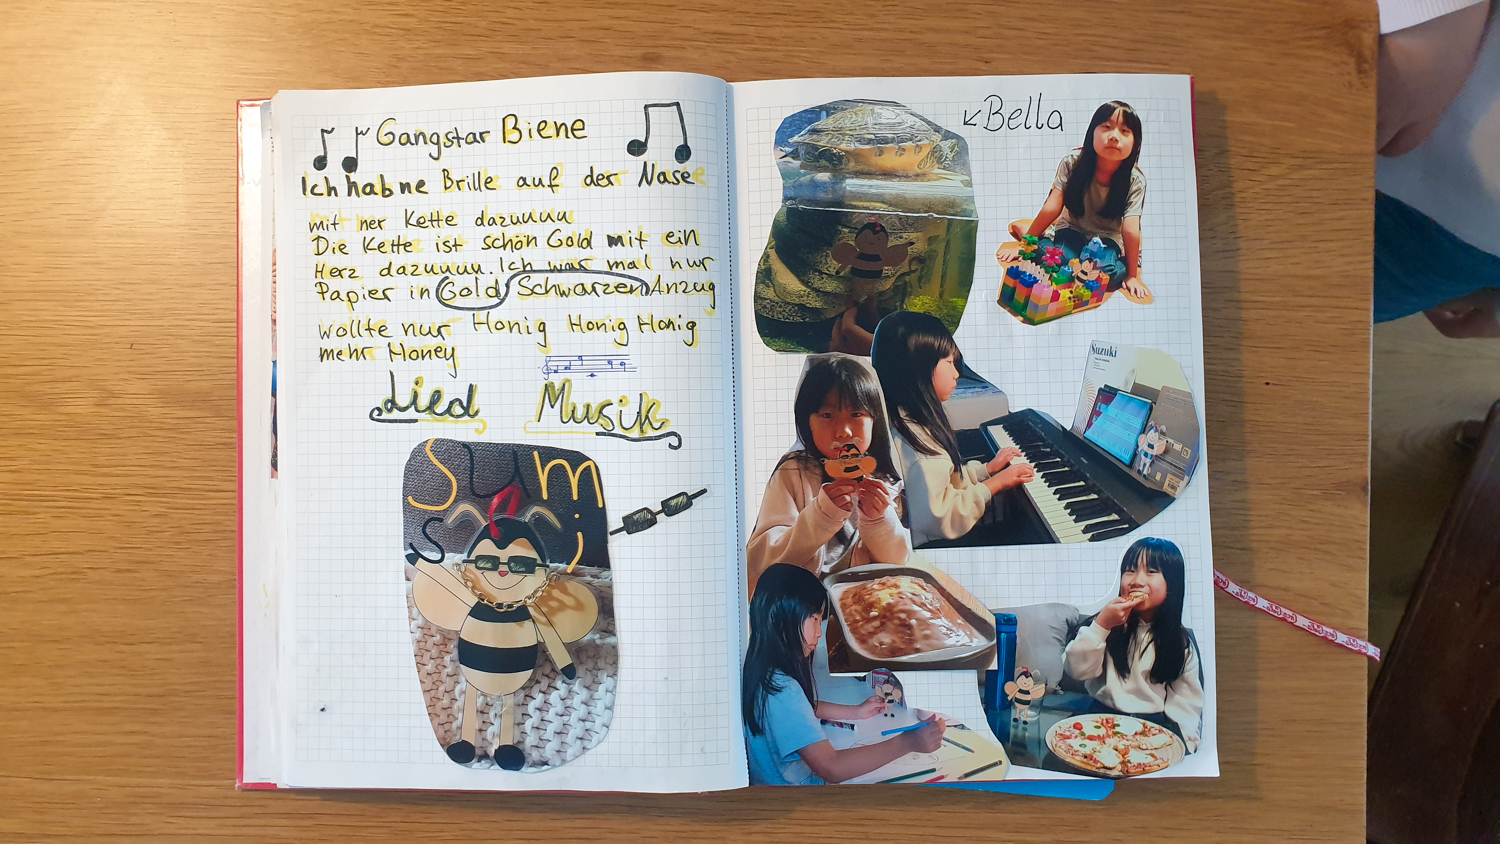 Gangstar Biene
Ich hab ne Brille auf der Nasee
mit ner Kette dazuuuu
Die Kette ist schön Gold mit ein
Herz dazuuuu. Ich war mal nur
Papier in Gold Schwarzen Anzug
wollte nur Honig Honig Honig
mehr Money
Lied Musik
Sum
si
Bella
Suzuki